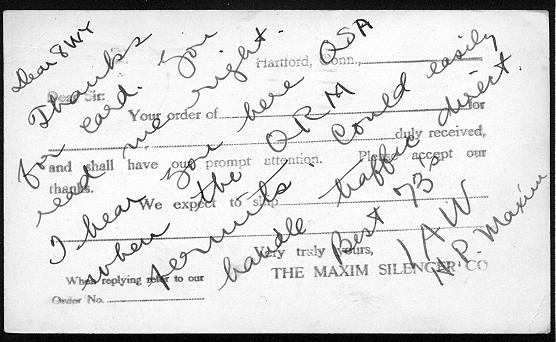 Dear 8WY
Thanks
for card. You
read me right.
I hear you here QSA
when the QRM
permits. Could easily
handle traffic direct.
Best 73's
1AW
H.P. Maxim
Hartford, Conn.,
Dear Sir:
Your order of for
duly received,
and shall have our prompt attention. Please accept our
thanks.
We expect to ship
Very truly yours,
THE MAXIM SILENCER CO
When replying refer to our
Order No.